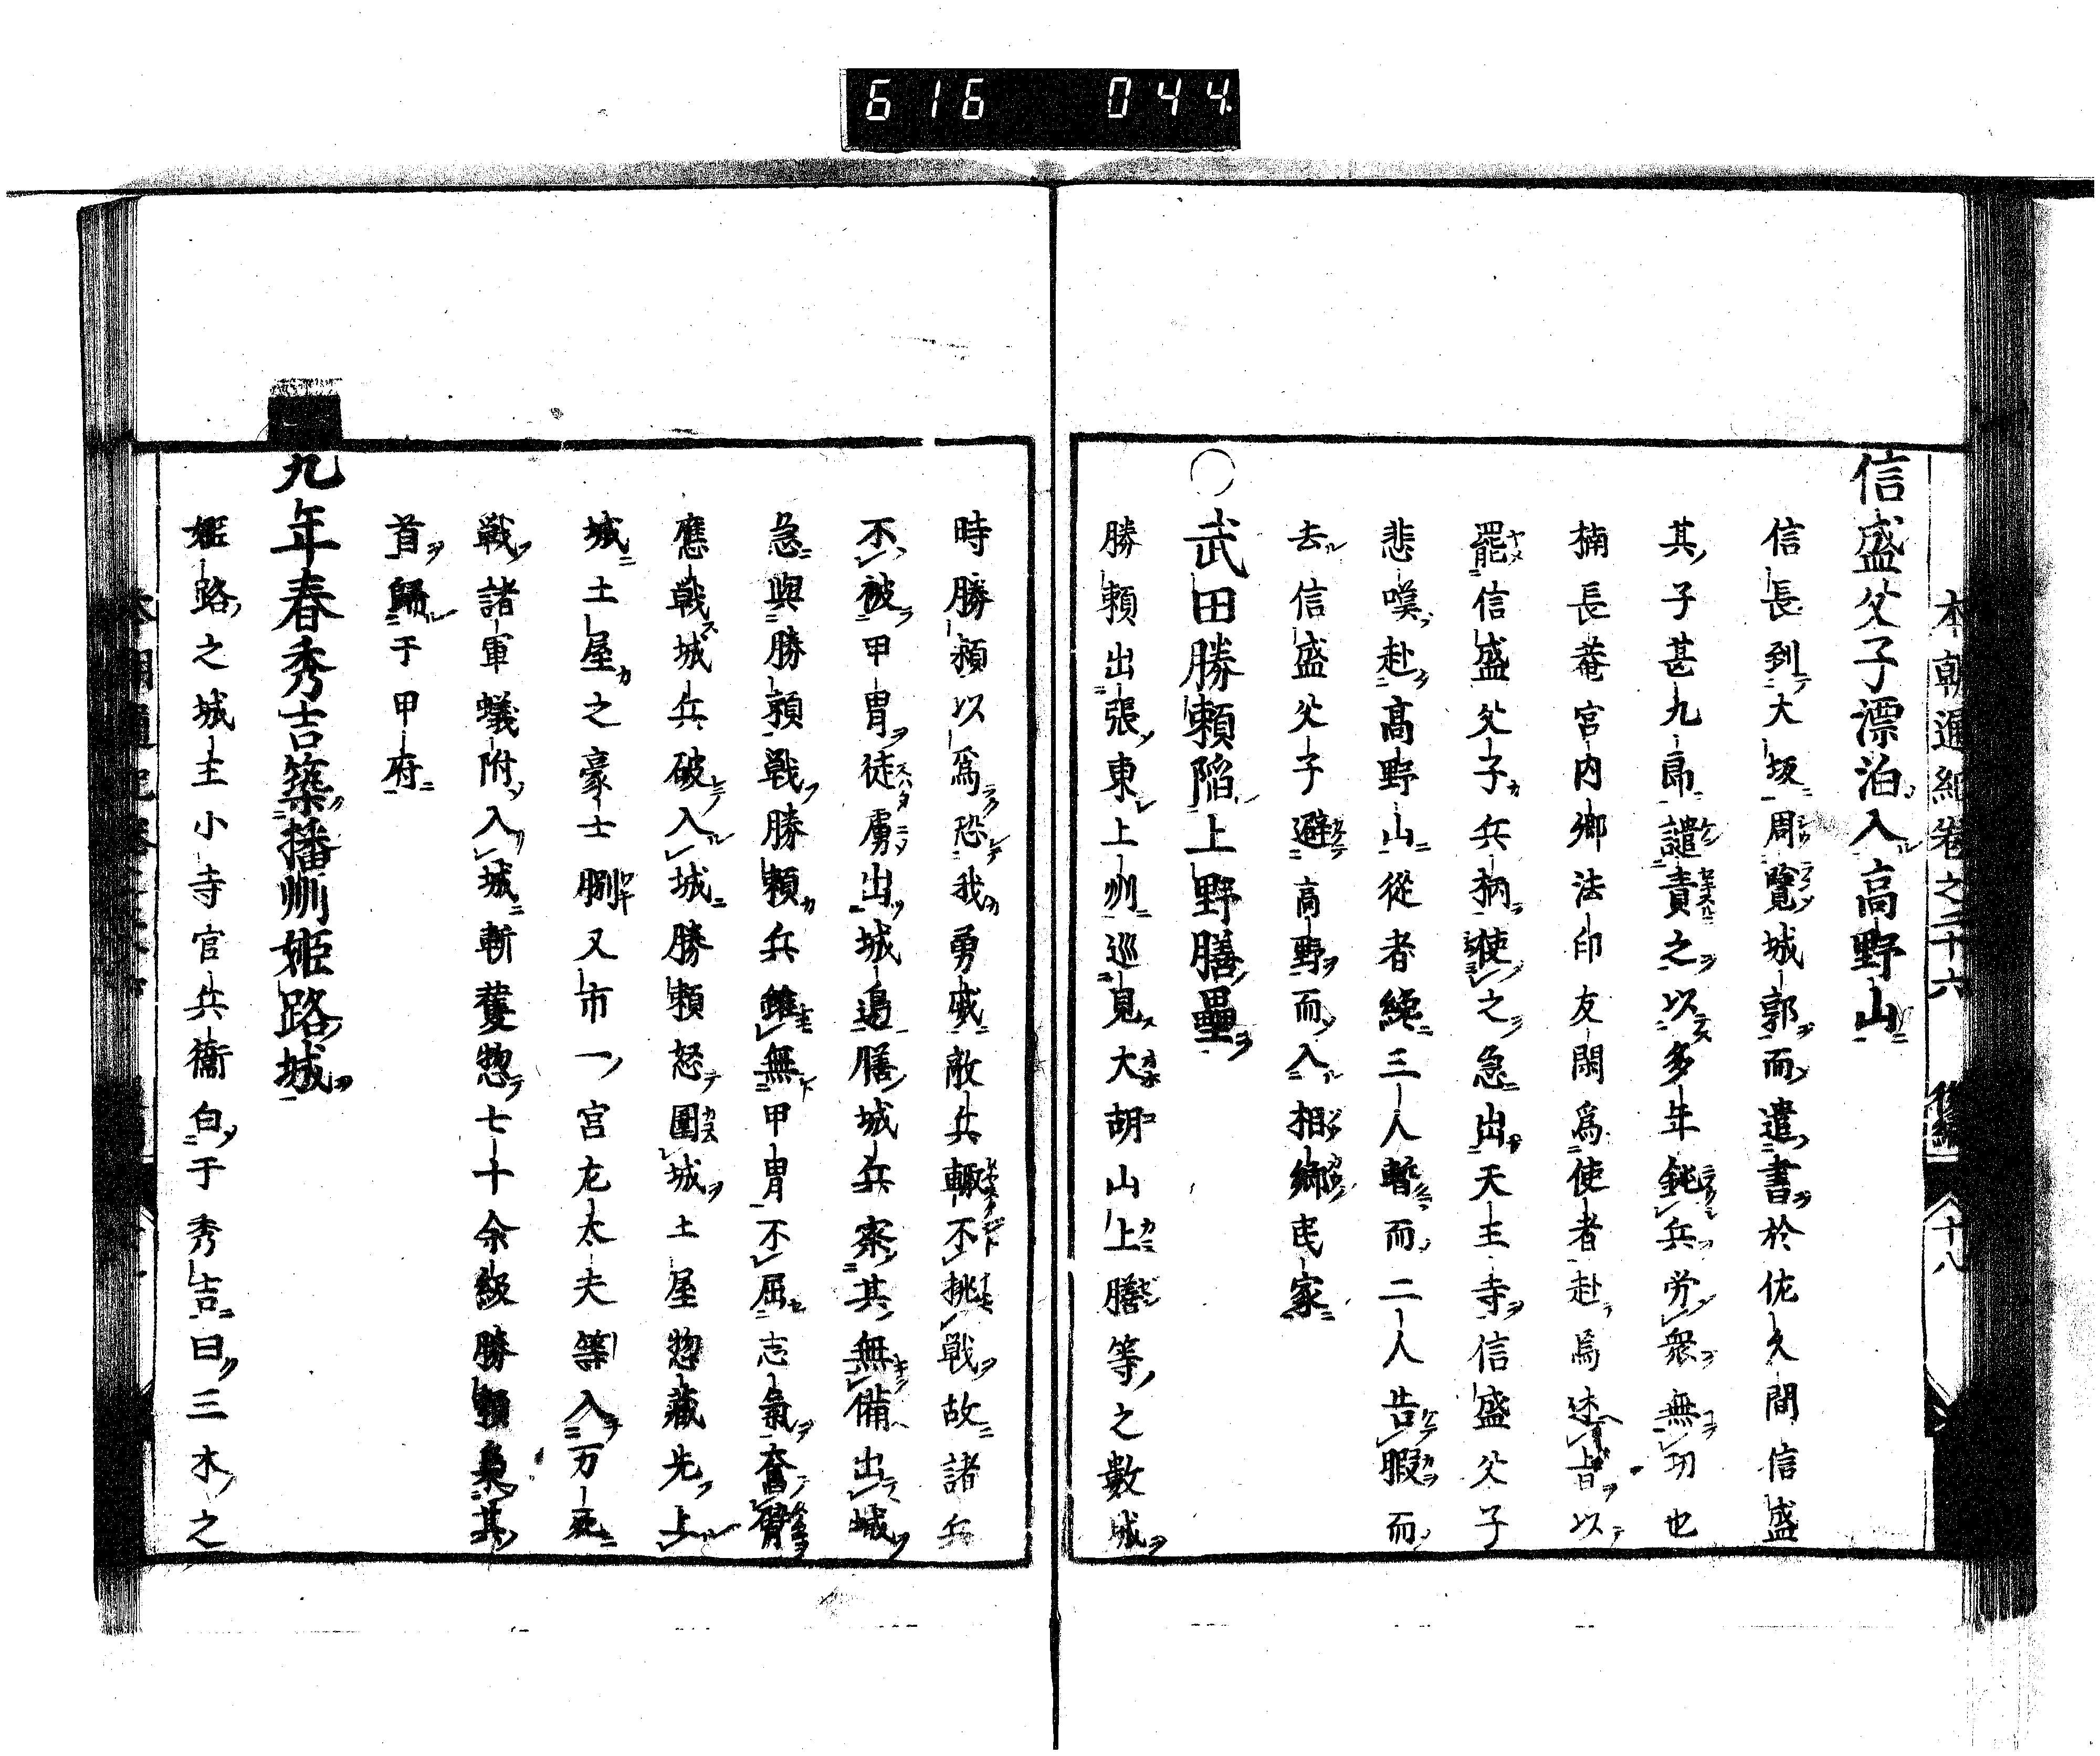 616 044
本朝通紀卷之二十六 後編 十八
信盛父子漂泊入高野山
信長到大坂周覽城郭而遣書於佐久間信盛
其子甚九郎譴責之以多年鈍兵労衆無功也
楠長菴宮内卿法印友閑爲使者赴焉述旨以
罷信盛父子兵柄使之急出天王寺信盛父子
悲嘆赴高野山從者纔三人暫而二人告暇而
去信盛父子避高野而入相郷民家
○武田勝頼陷上野膳壘
勝頼出張東上州巡見大胡山上膳等之數城
時勝頼以爲恐我勇威敵兵輙不挑戰故諸兵
不被甲冑徒膚出城邊膳城兵察其無備出城
急與勝頼戰勝頼兵雖無甲冑不屈志氣奮臂
應戰城兵破入城勝頼怒圍城土屋惣藏先上
城土屋之豪士脇又市一宮左太夫等入万死
戰諸軍蟻附入城斬獲惣七十余級勝頼梟其
首歸于甲府
九年春秀吉築播州姫路城
姫路之城主小寺官兵衞白于秀吉曰三木之